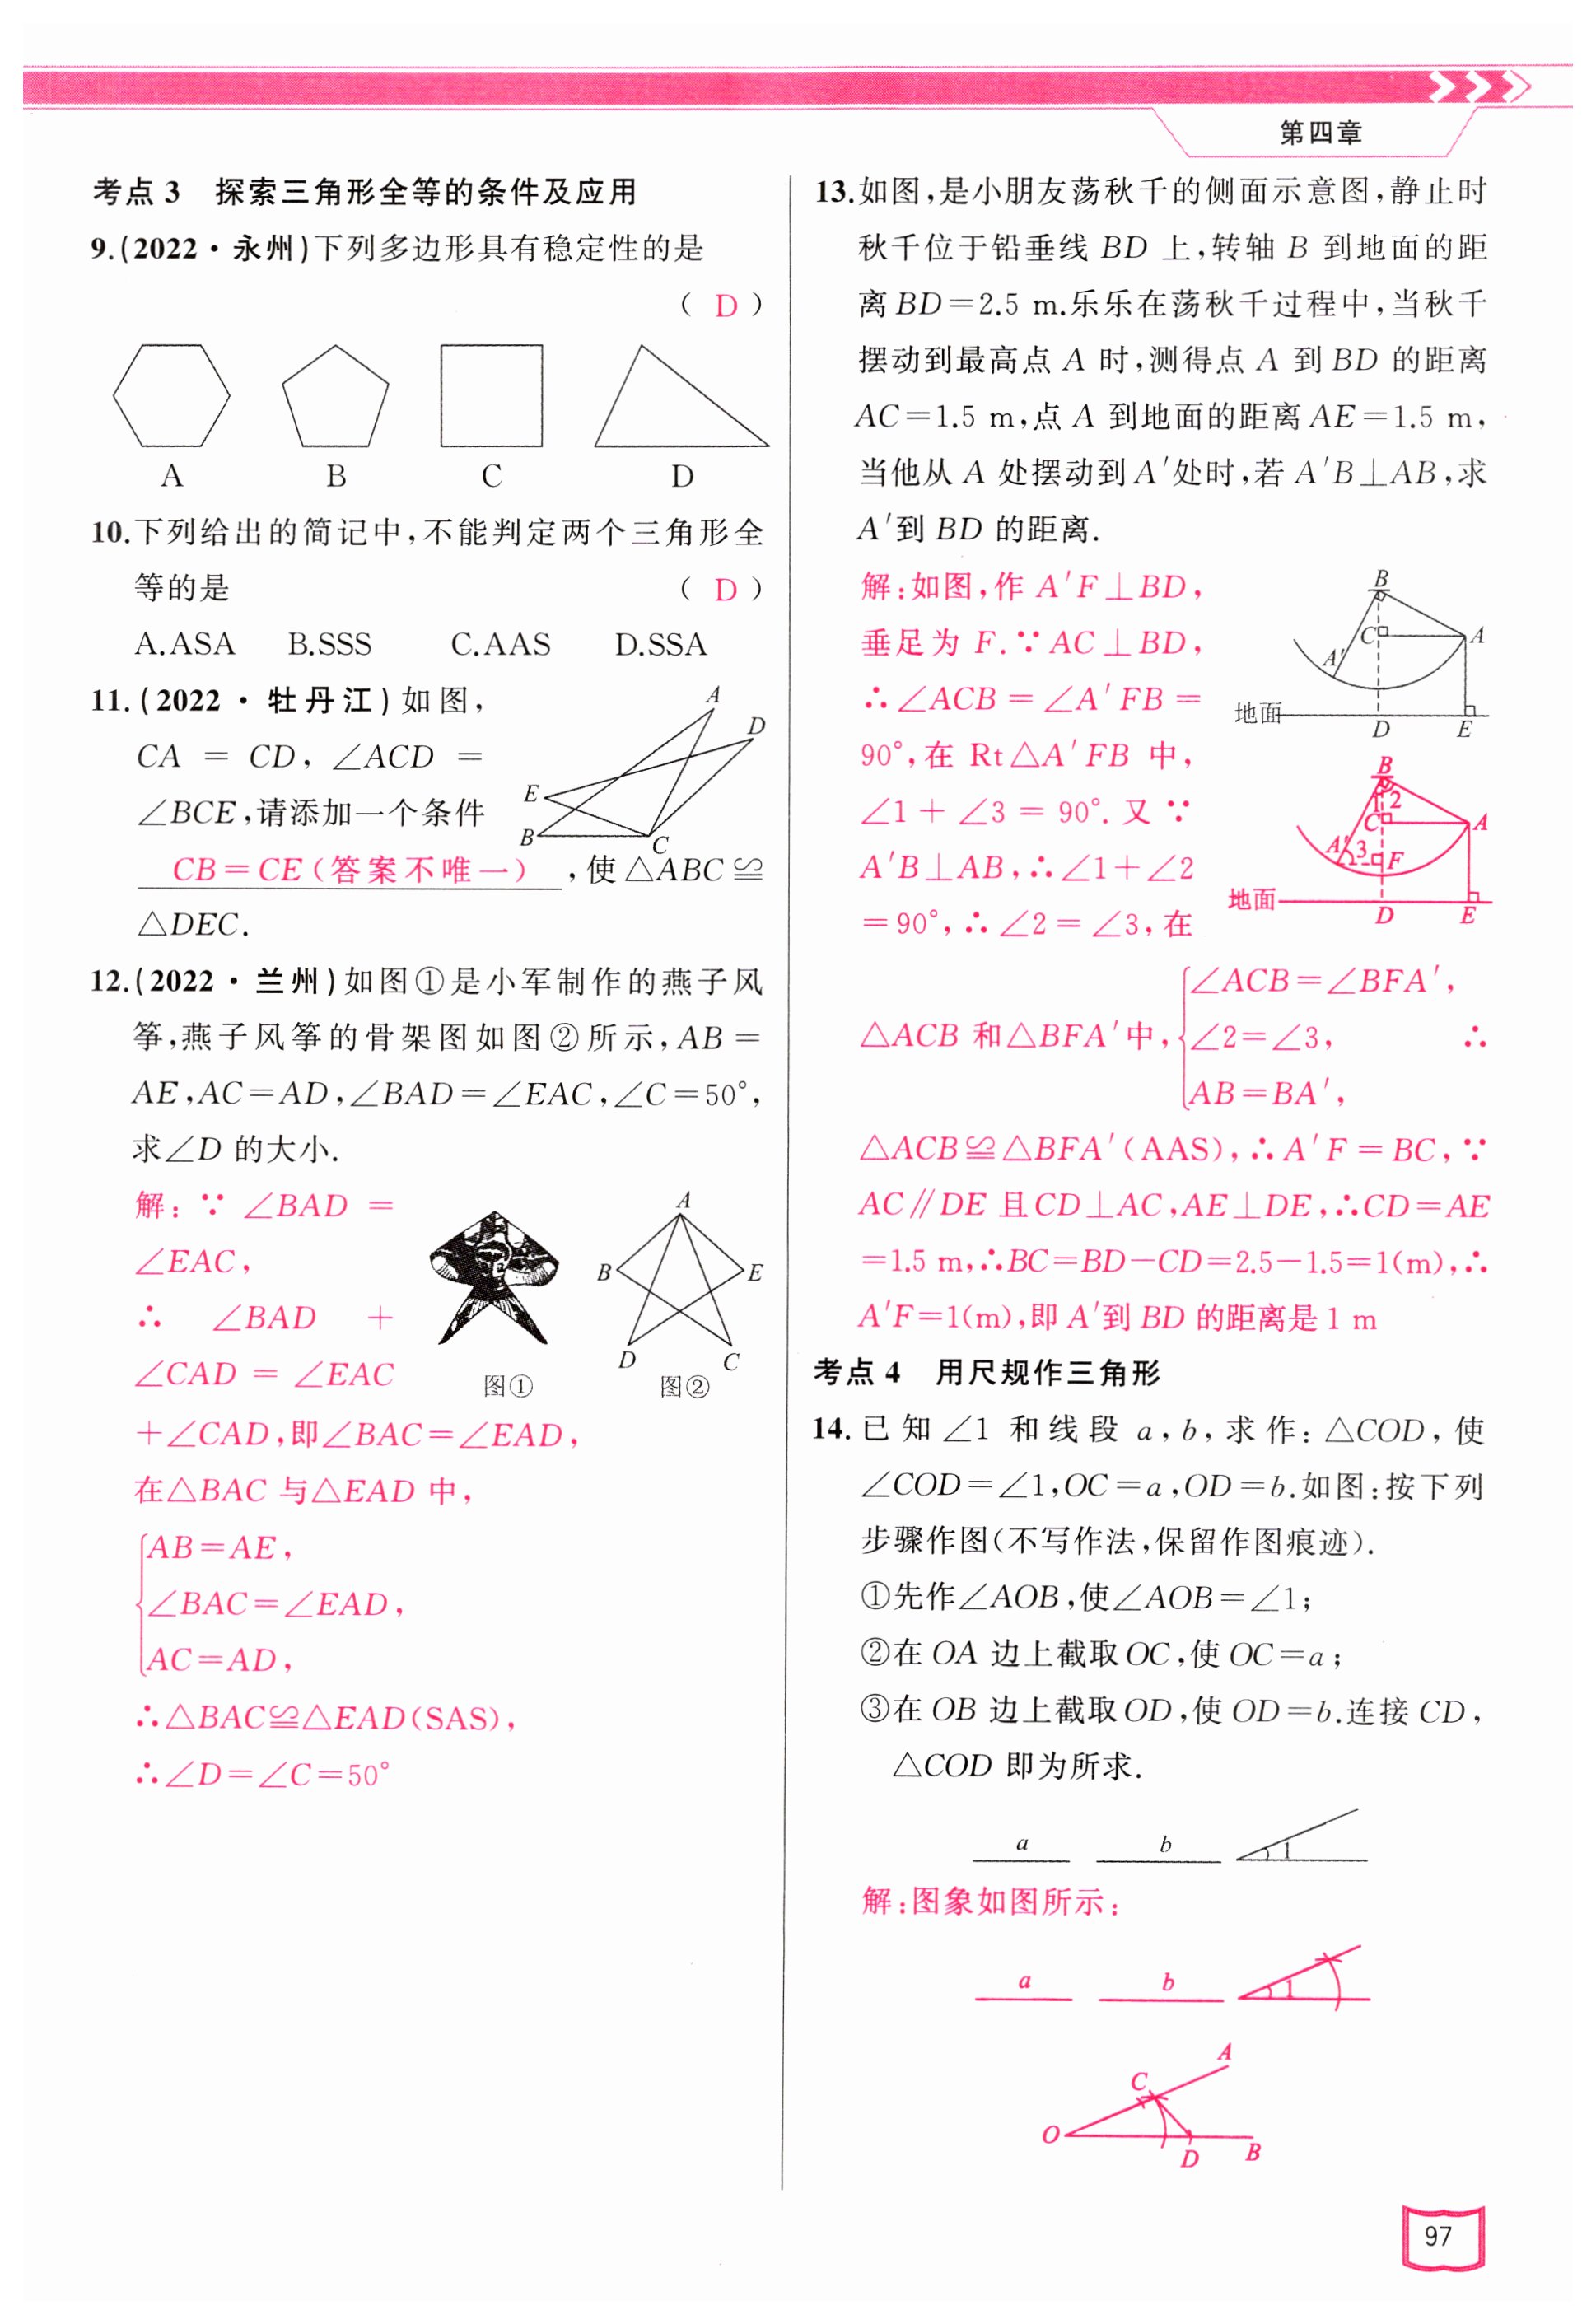 第四章
考点 3 探索三角形全等的条件及应用
9.(2022·永州)下列多边形具有稳定性的是
( D )
A B C D
10.下列给出的简记中,不能判定两个三角形全
等的是 ( D )
A.ASA B.SSS C.AAS D.SSA
11.(2022·牡丹江)如图,
CA = CD, ∠ACD =
∠BCE,请添加一个条件
CB=CE(答案不唯一),使△ABC≌
△DEC.
A
D
E
B
C
12.(2022·兰州)如图①是小军制作的燕子风
筝,燕子风筝的骨架图如图②所示,AB=
AE,AC=AD,∠BAD=∠EAC,∠C=50°,
求∠D 的大小.
解:∵ ∠BAD =
∠EAC,
∴ ∠BAD +
∠CAD = ∠EAC
+∠CAD,即∠BAC=∠EAD,
在△BAC 与△EAD 中,
AB=AE,
∠BAC=∠EAD,
AC=AD,
∴△BAC≌△EAD(SAS),
∴∠D=∠C=50°
A
B E
D C
图① 图②
13.如图,是小朋友荡秋千的侧面示意图,静止时
秋千位于铅垂线 BD 上,转轴 B 到地面的距
离 BD=2.5 m.乐乐在荡秋千过程中,当秋千
摆动到最高点 A 时,测得点 A 到 BD 的距离
AC=1.5 m,点 A 到地面的距离 AE=1.5 m,
当他从 A 处摆动到 A′处时,若 A′B⊥AB,求
A′到 BD 的距离.
解:如图,作 A′F⊥BD,
垂足为 F.∵AC⊥BD,
∴∠ACB=∠A′FB=
90°,在 Rt△A′FB 中,
∠1+∠3=90°.又∵
A′B⊥AB,∴∠1+∠2
=90°,∴∠2=∠3,在
B
C A
A′
地面
D E
B
1 2
C A
A′ 3 F
地面
D E
∠ACB=∠BFA′,
△ACB 和△BFA′中, ∠2=∠3, ∴
AB=BA′,
△ACB≌△BFA′(AAS),∴A′F=BC,∵
AC∥DE 且 CD⊥AC,AE⊥DE,∴CD=AE
=1.5 m,∴BC=BD−CD=2.5−1.5=1(m),∴
A′F=1(m),即 A′到 BD 的距离是 1 m
考点 4 用尺规作三角形
14.已知∠1 和线段 a,b,求作:△COD,使
∠COD=∠1,OC=a,OD=b.如图:按下列
步骤作图(不写作法,保留作图痕迹).
①先作∠AOB,使∠AOB=∠1;
②在 OA 边上截取 OC,使 OC=a;
③在 OB 边上截取 OD,使 OD=b.连接 CD,
△COD 即为所求.
a b 1
解:图象如图所示:
a b 1
A
C
O
D B
97